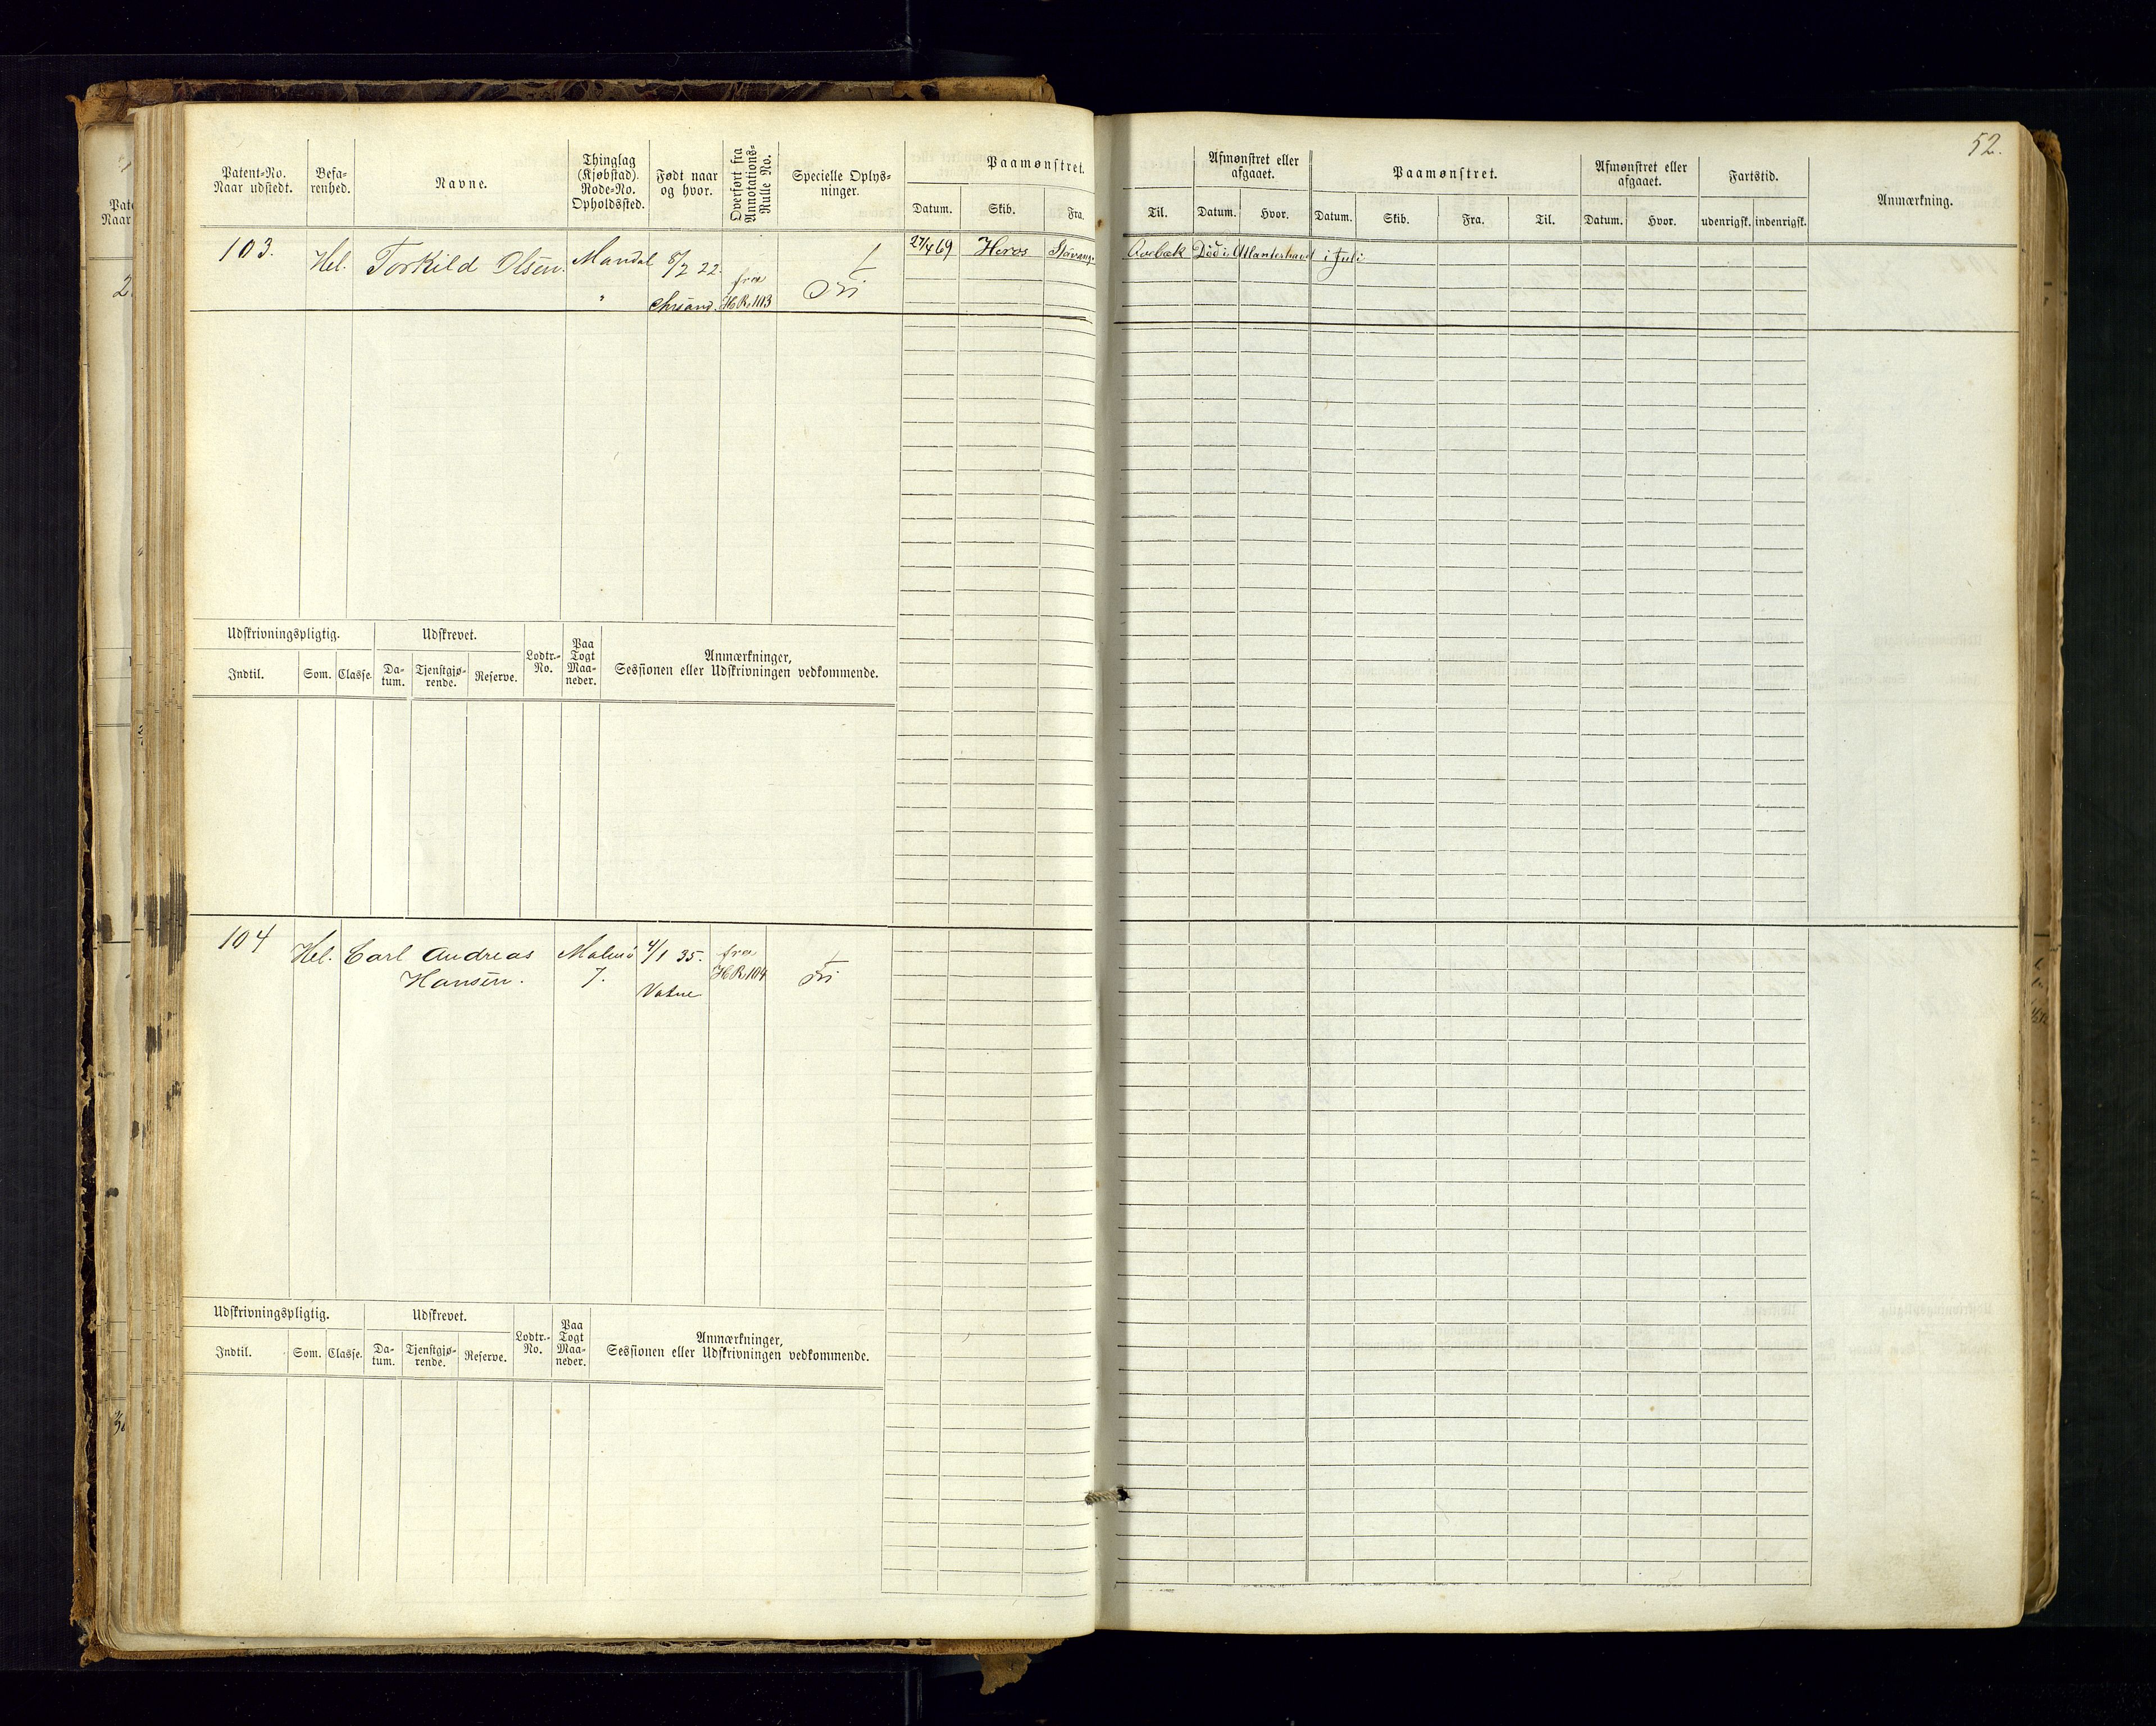 52.
Patent-No.
Naar udstedt.
Befa-
renhed.
Navne.
Thinglag
(Kjøbstad).
Rode-No.
Opholdssted.
Født naar
og hvor.
Overført fra
Annotations-
Rulle No.
Specielle Oplys-
ninger.
Paamønstret.
Datum. Skib. Fra. Til.
Afmønstret eller
afgaaet.
Datum. Hvor.
Paamønstret.
Datum. Skib. Fra. Til.
Afmønstret eller
afgaaet.
Datum. Hvor.
Fartstid.
udenrigsk. indenrigsk.
Anmærkning.
103. Hel. Torkild Olsen. Mandal 8/2 22. fra Fri 27/4 69 Heros Stavang. Død i Atlanterhavet i Juli
" Chrsand. H.R. 103
Udskrivningspligtig. Udskrevet.
Indtil. Som. Classe. Da-
tum. Tjenstgjø-
rende. Reserve.
Lodtr.-
No.
Paa
Togt
Maa-
neder.
Anmærkninger,
Sessionen eller Udskrivningen vedkommende.
104 Hel. Carl Andreas Malmö 4/1 35. fra Fri
Hansen. 7. Vatne H.R. 104
Udskrivningspligtig. Udskrevet.
Indtil. Som. Classe. Da-
tum. Tjenstgjø-
rende. Reserve.
Lodtr.-
No.
Paa
Togt
Maa-
neder.
Anmærkninger,
Sessionen eller Udskrivningen vedkommende.